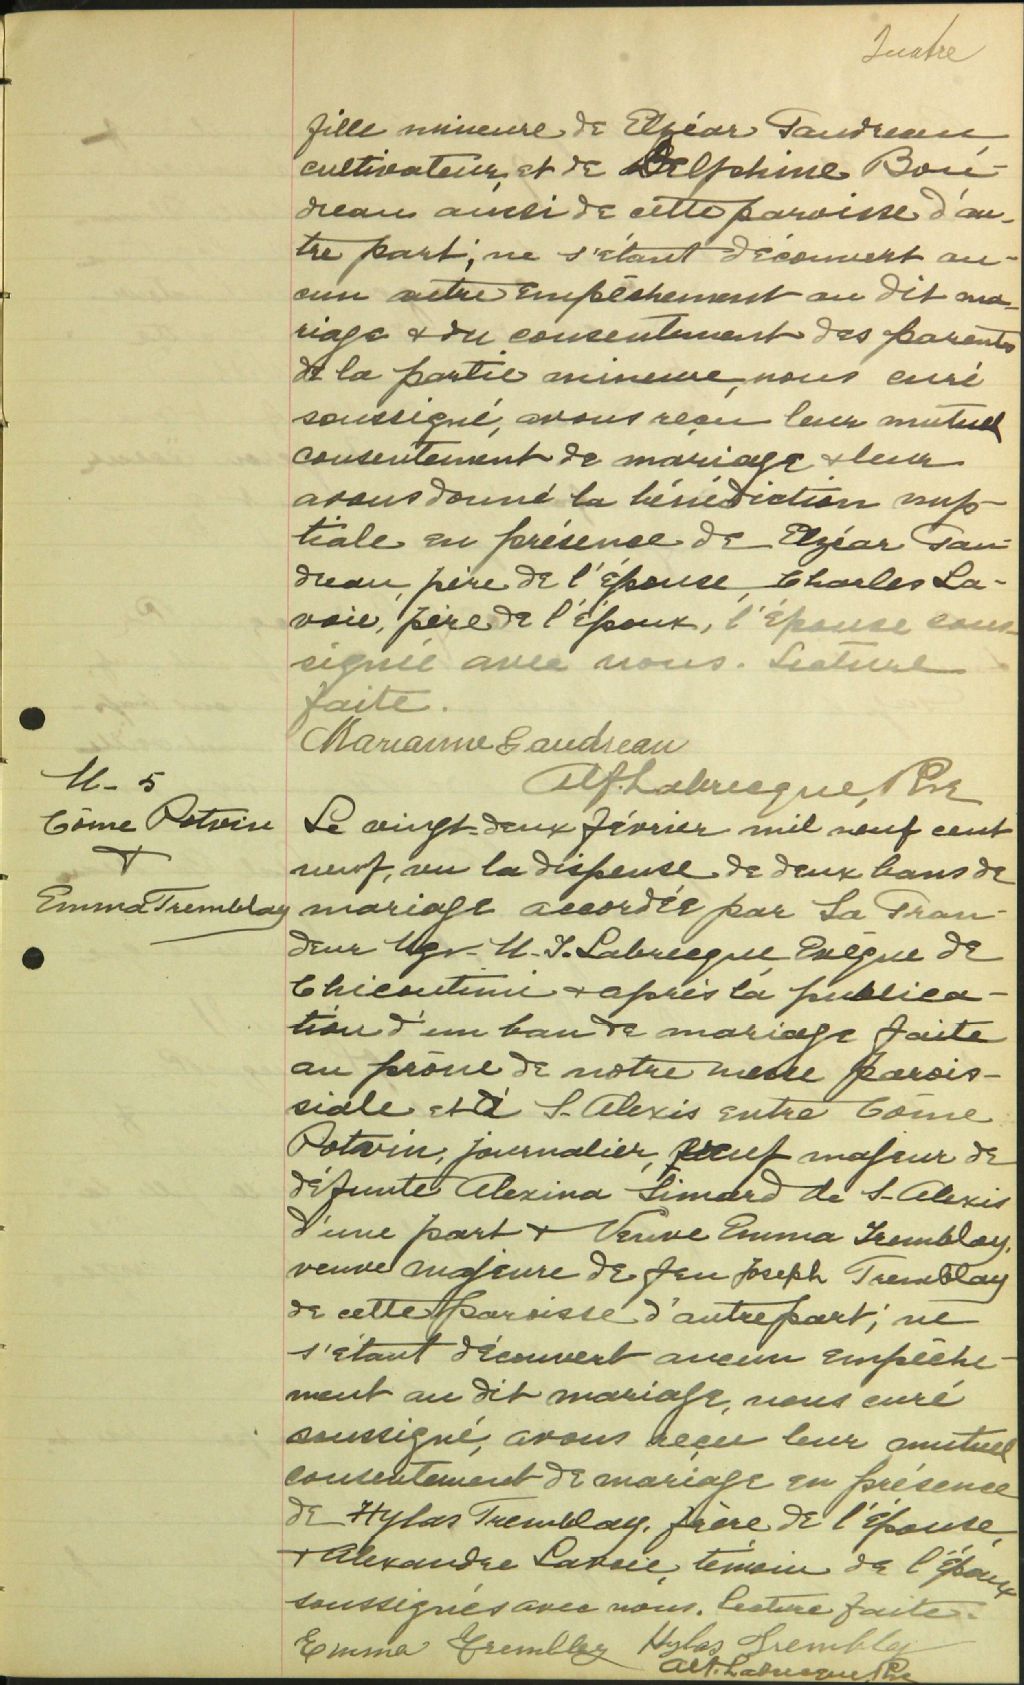 Quatre
fille mineure de Elzéar Gaudreau,
cultivateur, et de Delphine Bou-
dreau aussi de cette paroisse d'au-
tre part; ne s'étant découvert au-
cun autre empêchement au dit ma-
riage & du consentement des parents
de la partie mineure, nous curé
soussigné, avons reçu leur mutuel
consentement de mariage & leur
avons donné la bénédiction nup-
tiale en présence de Elzéar Gau-
dreau, père de l'épouse, Charles La-
voie, père de l'époux, l'épouse sous-
signée avec nous. Lecture
faite.
Marianne Gaudreau
Alf. Labrecque, Ptre
M- 5
Côme Potvin
&
Emma Tremblay
Le vingt-deux février mil neuf cent
neuf, vu la dispense de deux bans de
mariage accordée par Sa Gran-
deur Mgr. M. T. Labrecque Evêque de
Chicoutimi & après la publica-
tion d'un ban de mariage faite
au prône de notre messe parois-
siale et à S. Alexis entre Côme
Potvin, journalier, veuf majeur de
défunte Alexina Simard de S. Alexis
d'une part & Veuve Emma Tremblay,
veuve majeure de feu Joseph Tremblay
de cette paroisse d'autre part; ne
s'étant découvert aucun empêche-
ment au dit mariage, nous curé
soussigné, avons reçu leur mutuel
consentement de mariage en présence
de Hylas Tremblay, frère de l'épouse,
& Alexandre Lavoie, témoin de l'époux
soussignés avec nous. Lecture faite.
Emma Tremblay Hylas Tremblay
Alf. Labrecque, Ptre